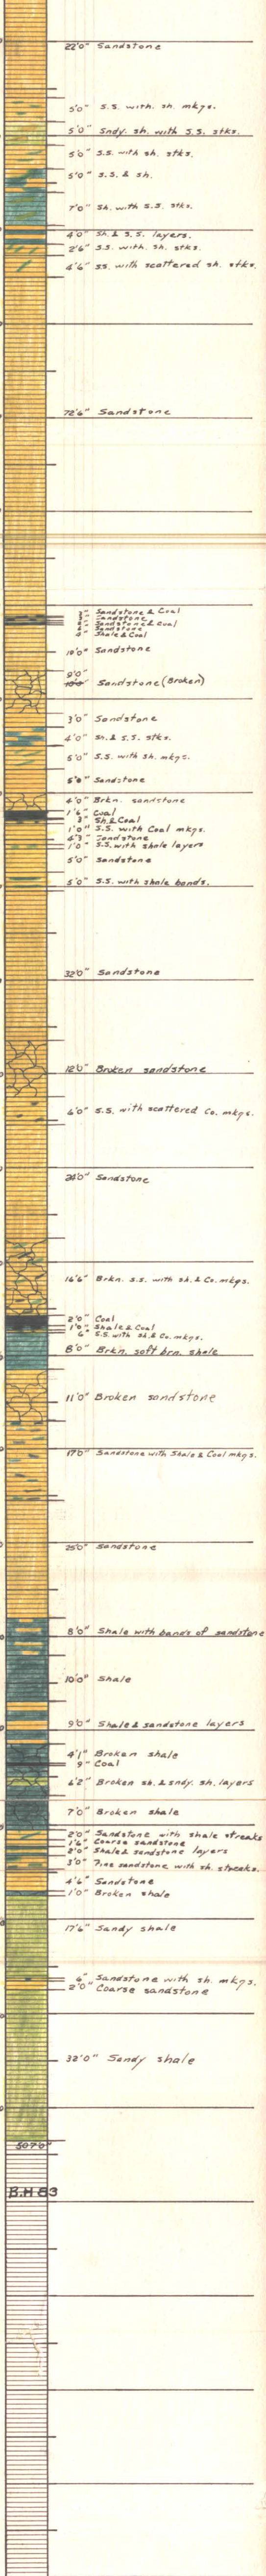 22'0" Sandstone
5'0" S.S. with. sh. mkgs.
5'0" Sndy. sh. with S.S. stks.
5'0" S.S. with sh. stks.
5'0" S.S. & sh.
7'0" Sh. with S.S. stks.
4'0" Sh. & S.S. layers.
2'6" S.S. with. sh. stks.
4'6" S.S. with scattered sh. stks.
72'6" Sandstone
Sandstone & Coal
Sandstone
Sandstone & Coal
Sandstone
4" Shale & Coal
19'0" Sandstone
9'0"
Sandstone (Broken)
3'0" Sandstone
4'0" Sh. & S.S. stks.
S.S. with sh. mkgs.
Sandstone
4'0" Brkn. sandstone
1'6" Coal
3" Sh. & Coal
1'0" S.S. with Coal mkgs.
4'3" Sandstone
1'0" S.S. with shale layers
5'0" Sandstone
5'0" S.S. with shale bands.
32'0" Sandstone
12'0" Broken sandstone
6'0" S.S. with scattered Co. mkgs.
24'0" Sandstone
16'6" Brkn. S.S. with sh. & Co. mkgs.
2'0" Coal
1'0" Shale & Coal
6" S.S. with sh. & Co. mkgs.
8'0" Brkn. soft brn. shale
11'0" Broken sandstone
17'0" Sandstone with Shale & Coal mkgs.
25'0" Sandstone
8'0" Shale with bands of sandstone
10'0" Shale
9'0" Shale & sandstone layers
4'1" Broken shale
9" Coal
6'2" Broken sh. & sndy. sh. layers
7'0" Broken shale
2'0" Sandstone with shale streaks
1'6" Coarse sandstone
2'0" Shale & sandstone layers
3'0" Fine sandstone with sh. streaks.
4'6" Sandstone
1'0" Broken shale
17'6" Sandy shale
6" Sandstone with sh. mkgs.
2'0" Coarse sandstone
32'0" Sandy shale
507'0"
B.H 53